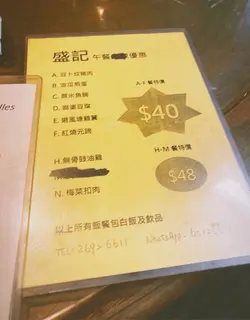 盛記 午餐 優惠
A. 豆卜炆豬肉
B. 油豆煎蛋
C. 粟米魚腩
D. 麻婆豆腐
E. 避風塘雞翼
F. 紅燒元蹄
A-F 餐特價
$40
H. 無骨豉油雞
N. 梅菜扣肉
H-M 餐特價
$48
以上所有飯餐包白飯及飲品
TEL: 2692 6611 WhatsApp:
lles